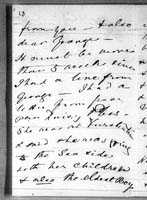 23
from you - & also
dear George -
It must be more
than 5 weeks since
I had a line from
George - I had a
letter from
poor Lucy
She was at
& said she was going
to the Sea side
with her children
& also the eldest Boy